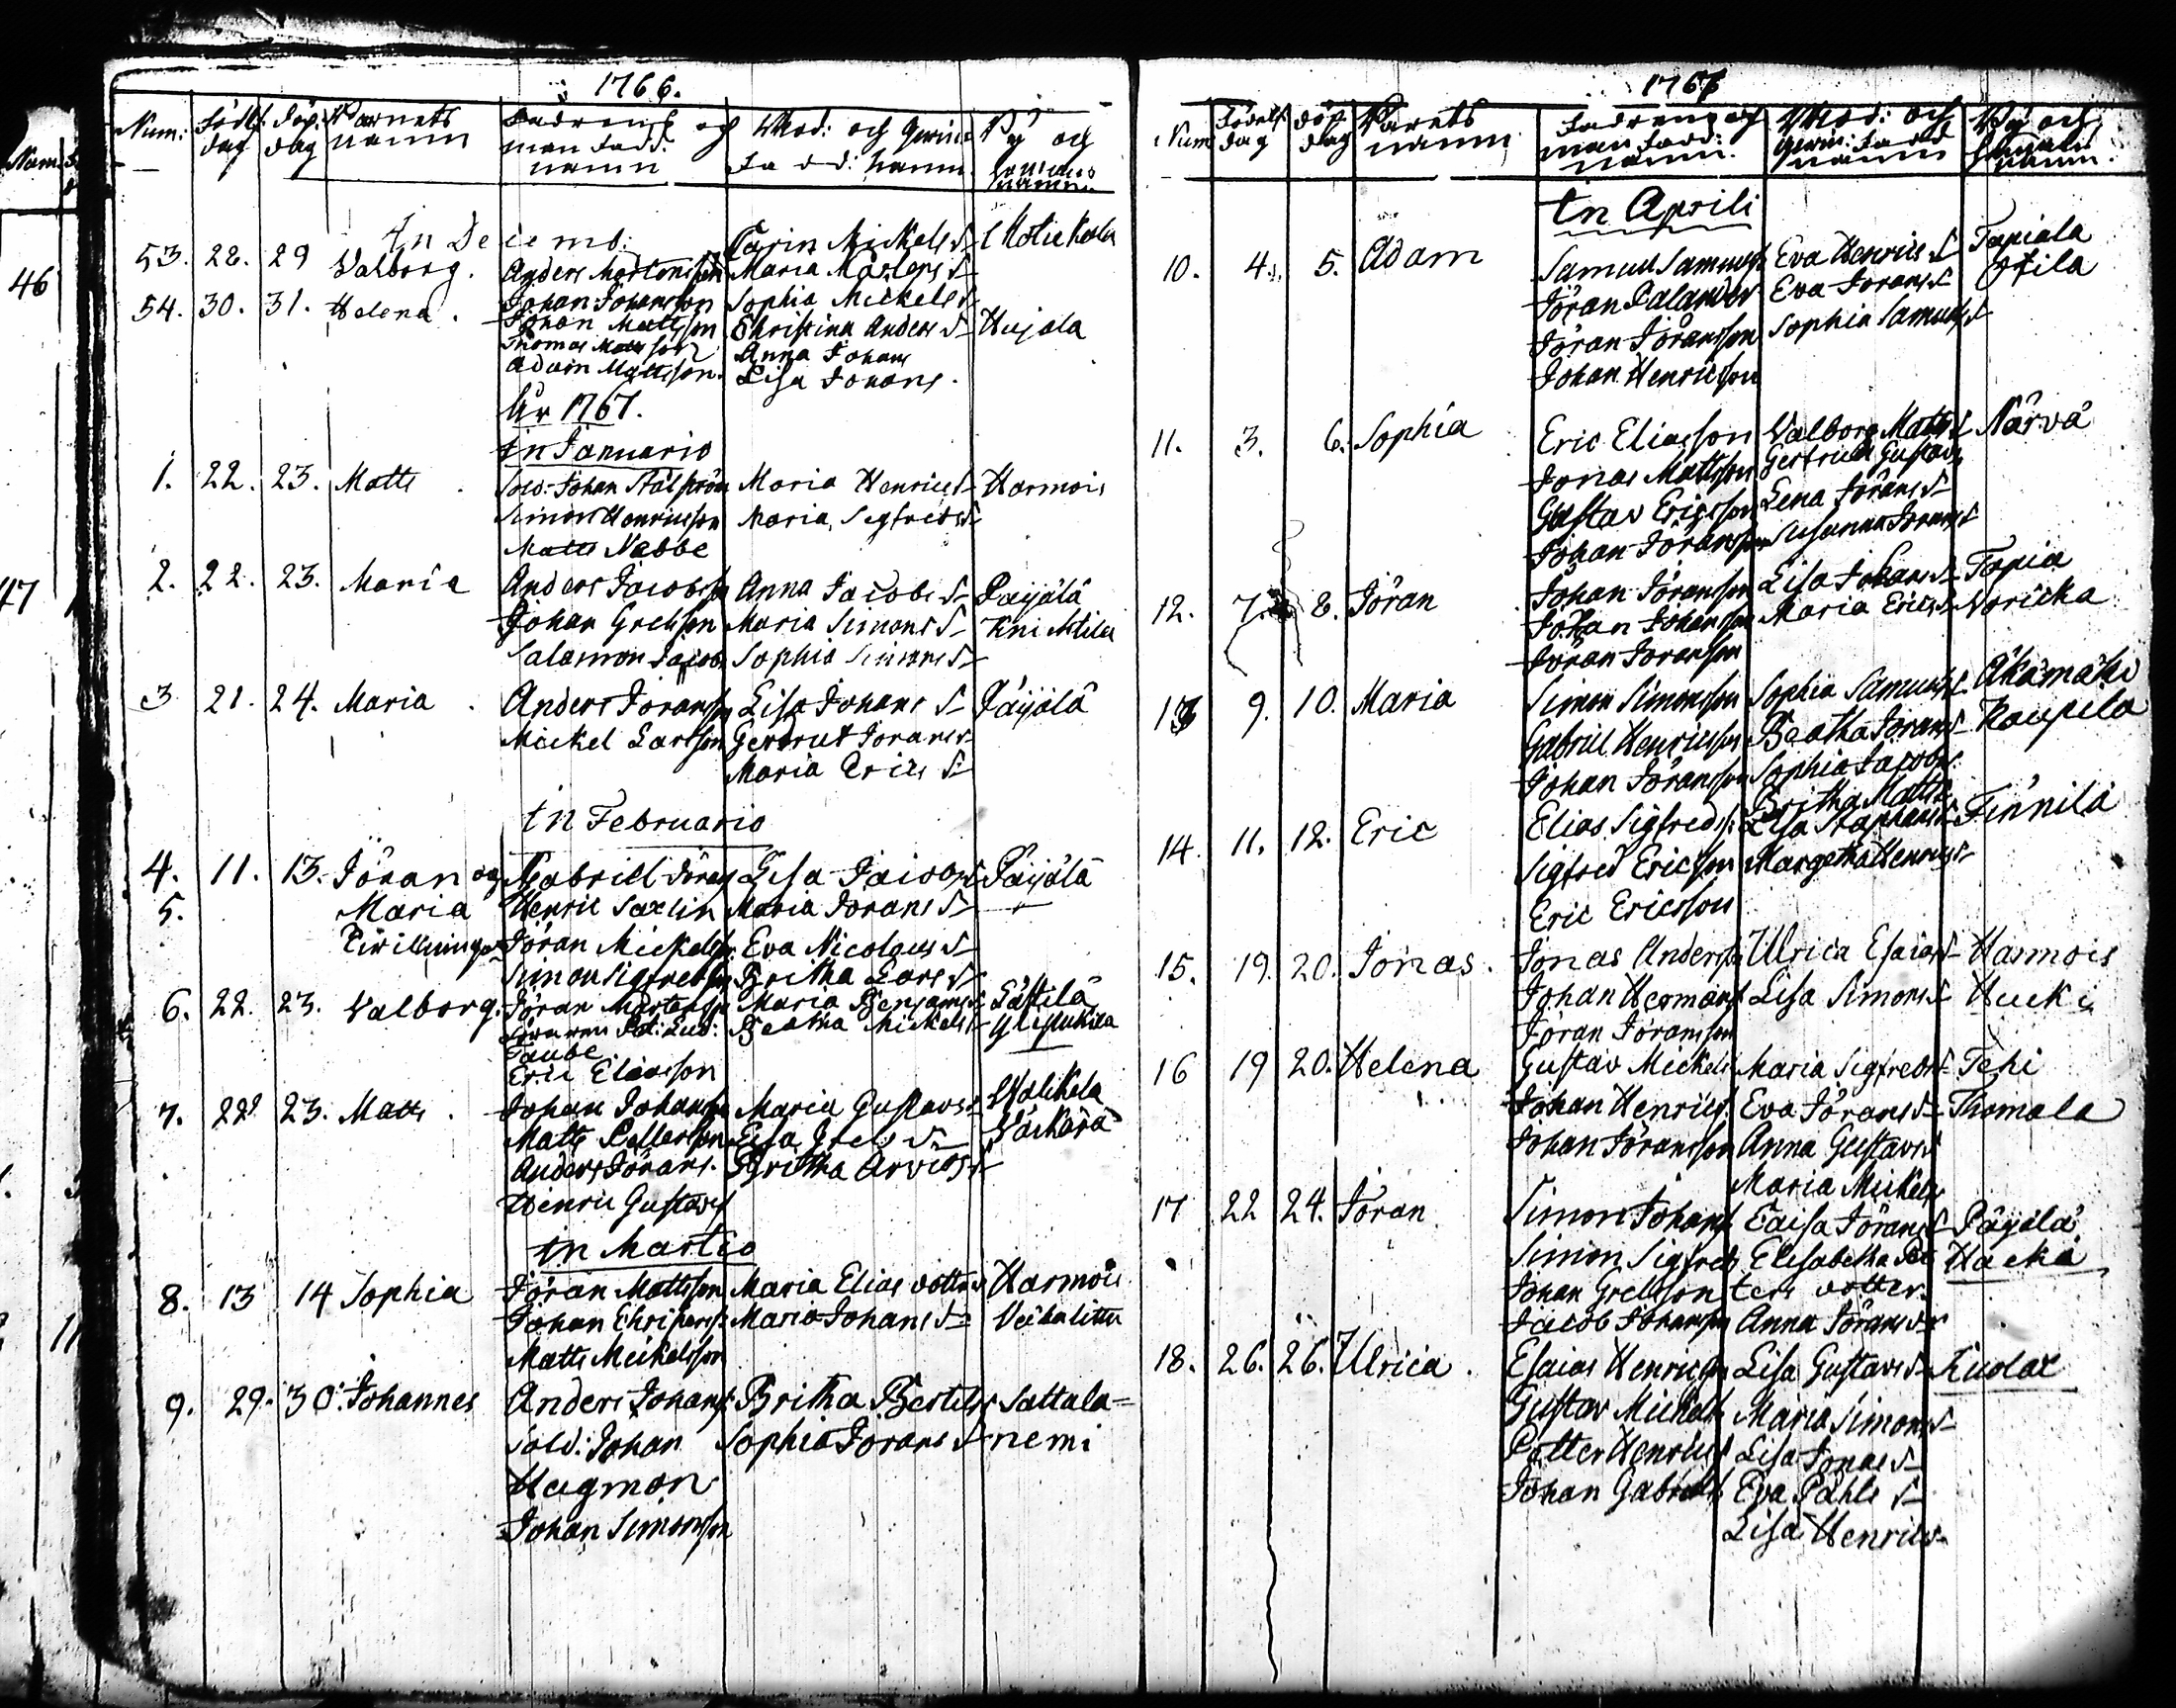 1766.
Num: födls dag döp: dag Barnets namn Fadrens och man fadd: namn Mod: och qwin: fadd: namn By och hemans namn
In Decemb:
53. 28. 29 Valborg. Carin Mickels D
Anders Mortensson Maria Martens D
54. 30. 31. Helena. Johan Johansson Sophia Mickels D
Johan Mattsson Christina Anders D Hujala
Thomas Mattsson Anna Johans
Adam Mattsson. Lisa Johans.
År 1767.
In Januario
1. 22. 23. Matts Sold: Johan Stålström Maria Henrics D Harmois
Simon Henricsson Maria Segfreds D
Matts Nabbe
2. 22. 23. Maria Anders Jacobsson Anna Jacobs D Päijälä
Johan Grelsson Maria Simons D Knichtila
Salamon Jacobs Sophia Simons D
3 21. 24. Maria. Anders Joransson Lisa Johans D Päijälä
Mickel Larsson Gerdrut Jorans D
Maria Erics D
In Februario
4. 11. 13. Jöran og Gabriell Jörans Lisa Jacobs D Päijälä
5. Maria Henric Saxlin Maria Jorans D
Twillingar Jöran Mickelss: Eva Nicolaus D
Simon Sigfredss Britha Lars D
6. 22. 23. Valborg. Jöran Mårtenss Maria Benjams D Sästilä
Beatha Mickels D
Taube
Eric Eliasson
7. 22 23. Matts. Johan Johansson Maria Gustavs D
Matts Pettersson Lisa
Anders Jörans. Britha Arvids D
Henric Gustavs
In Martio
8. 13 14 Sophia Jöran Mattsson Maria Elias dotter Harmois
Johan Maria Johans D
Matts Meikelsson
9. 29. 30. Johannes Anders Johans: Britha Bertils Sattala=
Sold: Johan Sophia Jörans D nemi
Hagman
Johan Simonsson
1767
Num födels dag döp dag Barnets namn Fadrens och man fadd: namn. Mod: och qwin: fadd namn By och namn.
In Aprili
10. 4. 5. Adam Samuel Samuels Eva Henrics D Tapiala
Jöran Palander Eva Jorans D
Jöran Jöransson Sophia Samuels D
Johan Henricsson
11. 3. 6. Sophia Eric Eliasson Valborg Matts D Närvä
Jonas Mattsson Gertrud Gustavs
Gustav Ericsson Lena Jörans D
Johan Joransson Susanna Jorans D
12. 7. 8. Jöran Johan Jöransson Lisa Johans D Tapia
Johan Johansson Maria Erics D Noricka
Jöran Joransson
13 9. 10. Maria Simon Simonsson Sophia Samuels D Äkämäki
Gabriel Henricsson Beatha Jorans D Kaupila
Johan Jöransson Sophia Jacobs
Britha Matts
14. 11. 12. Eric Elias Sigfreds: Lisa Staphans D Finnilä
Sigfred Ericsson Margetha Henrics D
Eric Ericsson
15. 19. 20. Jonas. Jonas Anderss Ulrica Esaias D Harmois
Johan Hermans Lisa Simons D
Jöran Joransson
16 19 20. Helena Gustav Mickels Maria Sigfreds D Tehi
Johan Henrics. Eva Jörans D Thomala
Johan Jöransson Anna Gustavs D
Maria Mickels
17 22 24. Joran. Simon Johans Caisa Jörans D Päijälä
Simon Sigfreds Elisabetha Pet Hackä
Johan Grelsson ters dotter.
Jacob Johansson Anna Jörans D
18. 26. 26. Ulrica. Esaias Henricss Lisa Gustavs D Kuolax
Gustav Mickelss Maria Simons D
Petter Henrics Lisa Jonas D
Johan Gabriels Eva Påhls D
Lisa Henrics D
46
47
11